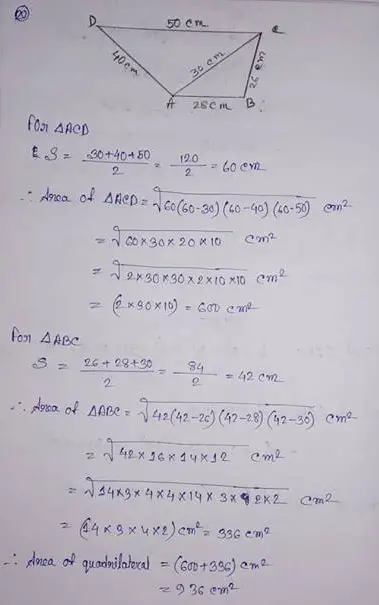 20
D 50 cm C
40cm 30 cm 26 cm
A 28cm B
For ΔACD
S = 30+40+50/2 = 120/2 = 60 cm
∴ Area of ΔACD = √60(60-30)(60-40)(60-50) cm²
= √60×30×20×10 cm²
= √2×30×30×2×10×10 cm²
= (2×30×10) = 600 cm²
For ΔABC
S = 26+28+30/2 = 84/2 = 42 cm
∴ Area of ΔABC = √42(42-26)(42-28)(42-30) cm²
= √42×16×14×12 cm²
= √14×3×4×4×14×3×2×2 cm²
= (14×3×4×2) cm² = 336 cm²
∴ Area of quadrilateral = (600+336) cm²
= 936 cm²